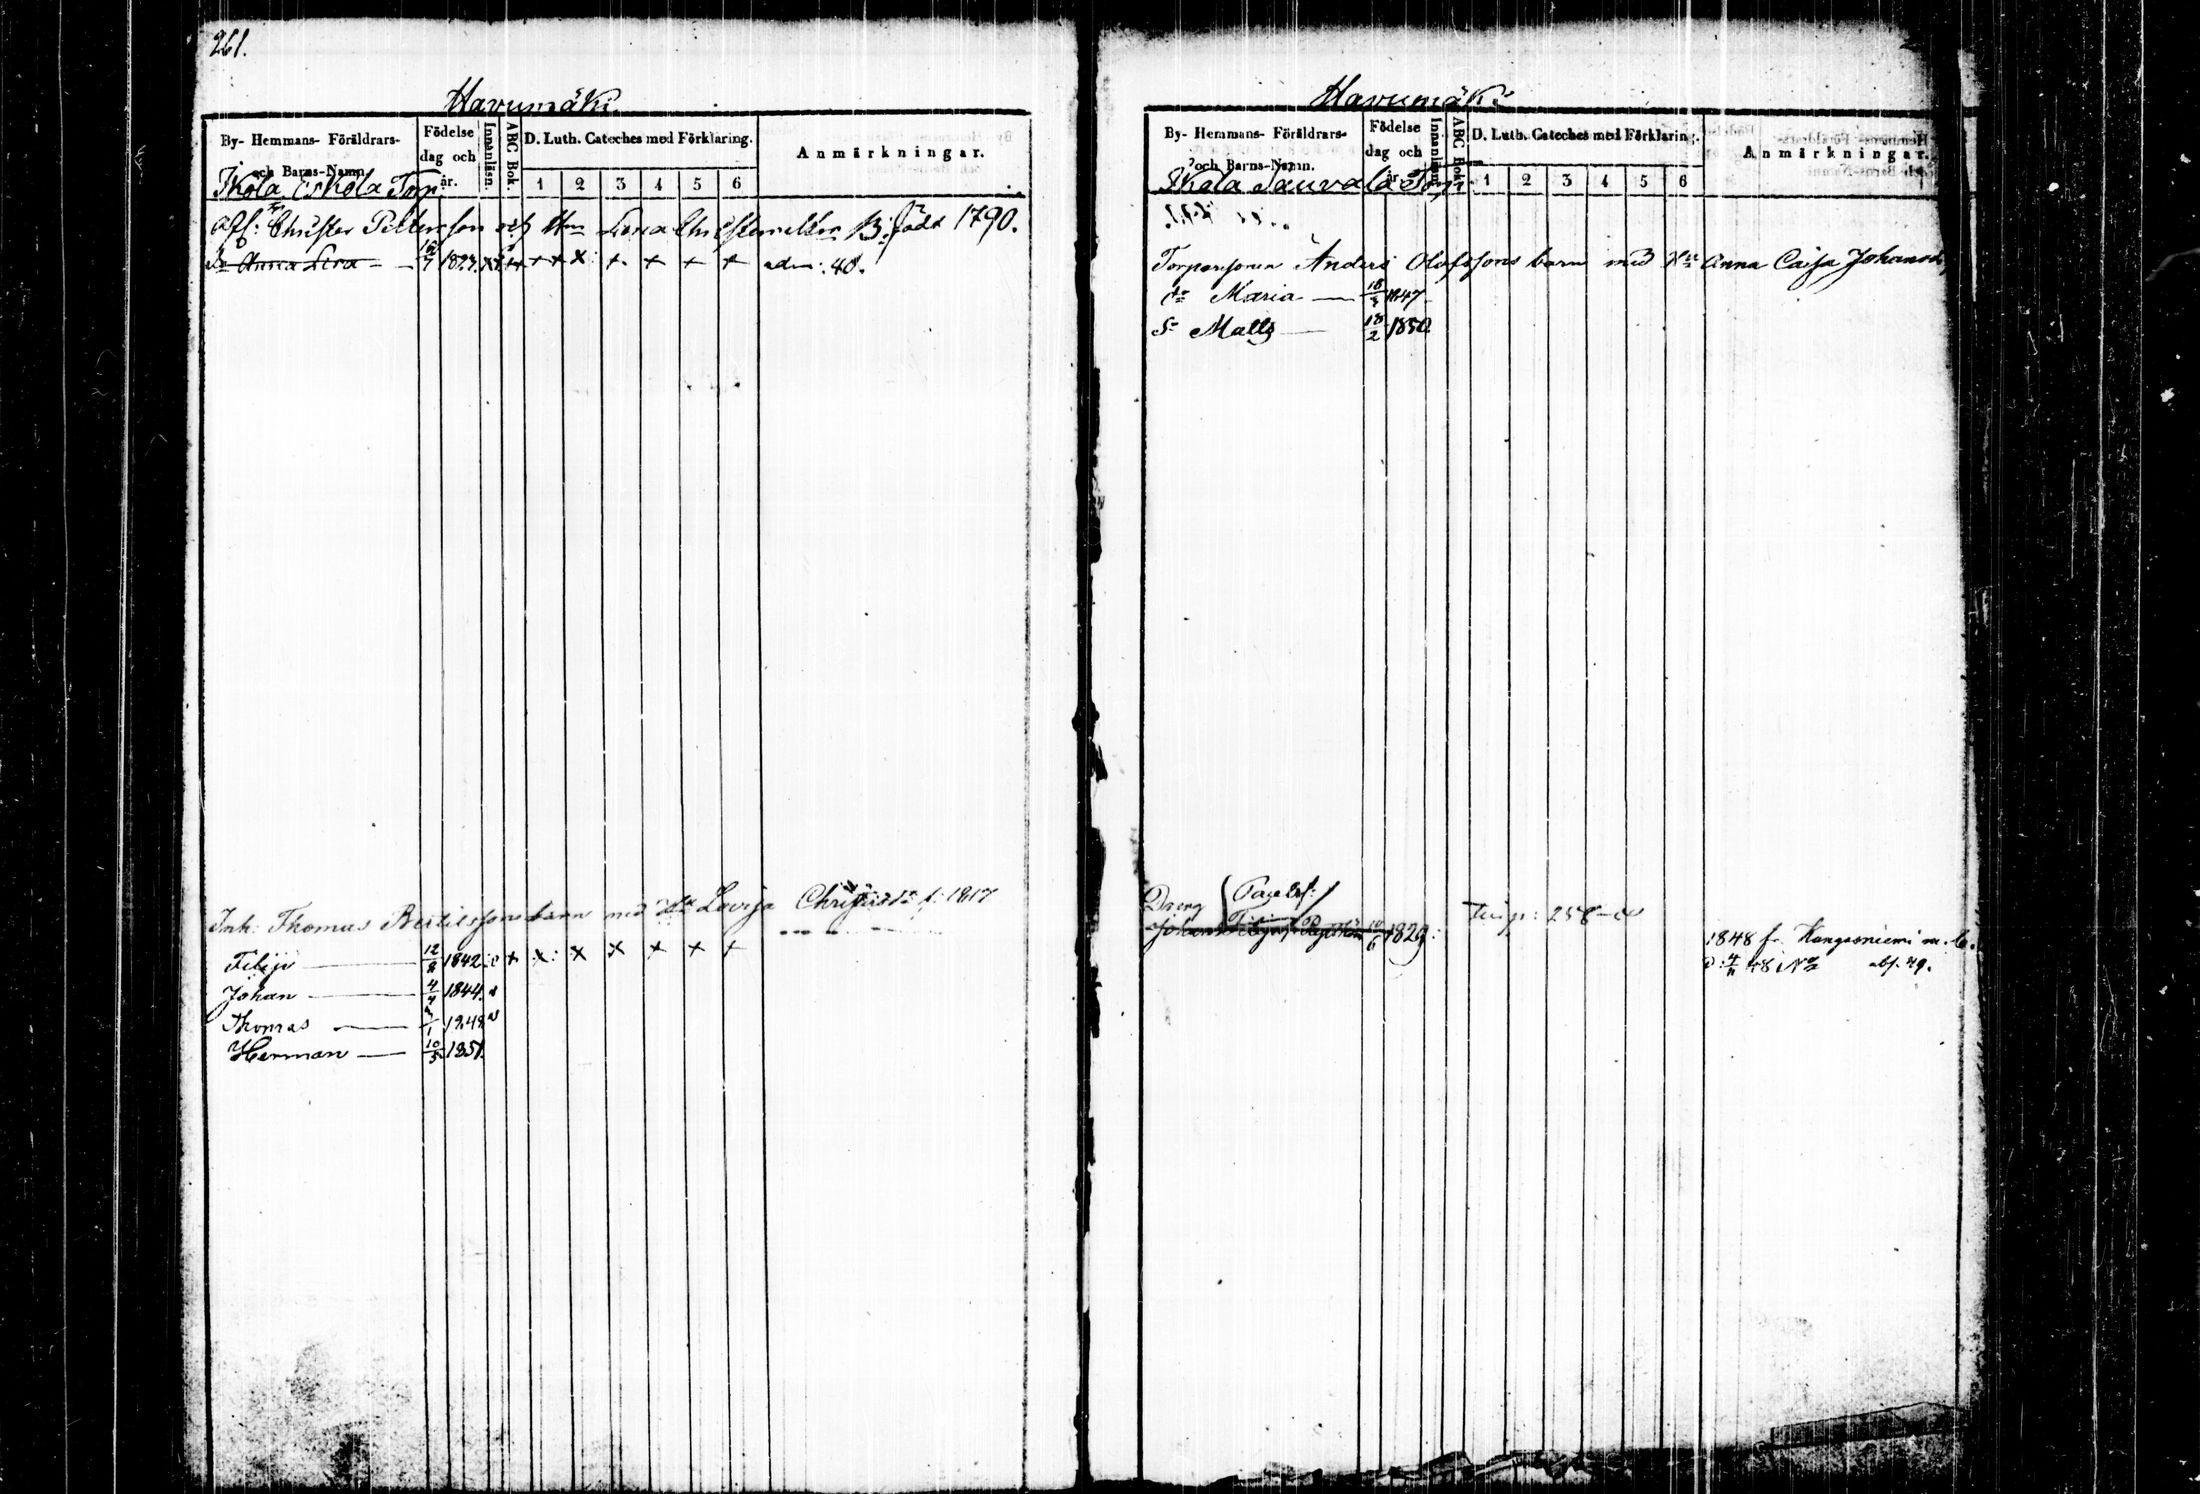 261.
Havumäki
By- Hemmans- Föräldrars-
och Barns-Namn.
Födelse
dag och
år.
Innanläsn.
ABC Bok.
D. Luth. Cateches med Förklaring.
1 2 3 4 5 6
Anmärkningar.
Ikola Eskola Torp
Afl: Christer Pettersson och H:u Lena Christersdotter B: född 1790.
Dr Anna Lisa — 7 182 x + + + x + + + + adm: 40.
Inh: Thomas Bertilsson barn med H:u Lovisa f: 1817
Filip — 12/8 1842 + x x x + + +
Johan — 4/4 1844
Thomas — /1 1848
Herman — 10/5 1851.
Havumäki
By- Hemmans- Föräldrars-
och Barns-Namn.
Födelse
dag och
år
Innanläsn.
ABC Bok.
D. Luth. Cateches med Förklaring.
1 2 3 4 5 6
Anmärkningar.
Ikola Sauvala Torp
Torparsonen Anders Olofssons barn med H:u Anna Caisa Johansd
dr Maria — 18/ 1847
S. Matts — 18/2 1850
Dreng
Johan /6 1829: 258
1848 fr. Kangasniemi m. b.
48 No abs. 49.